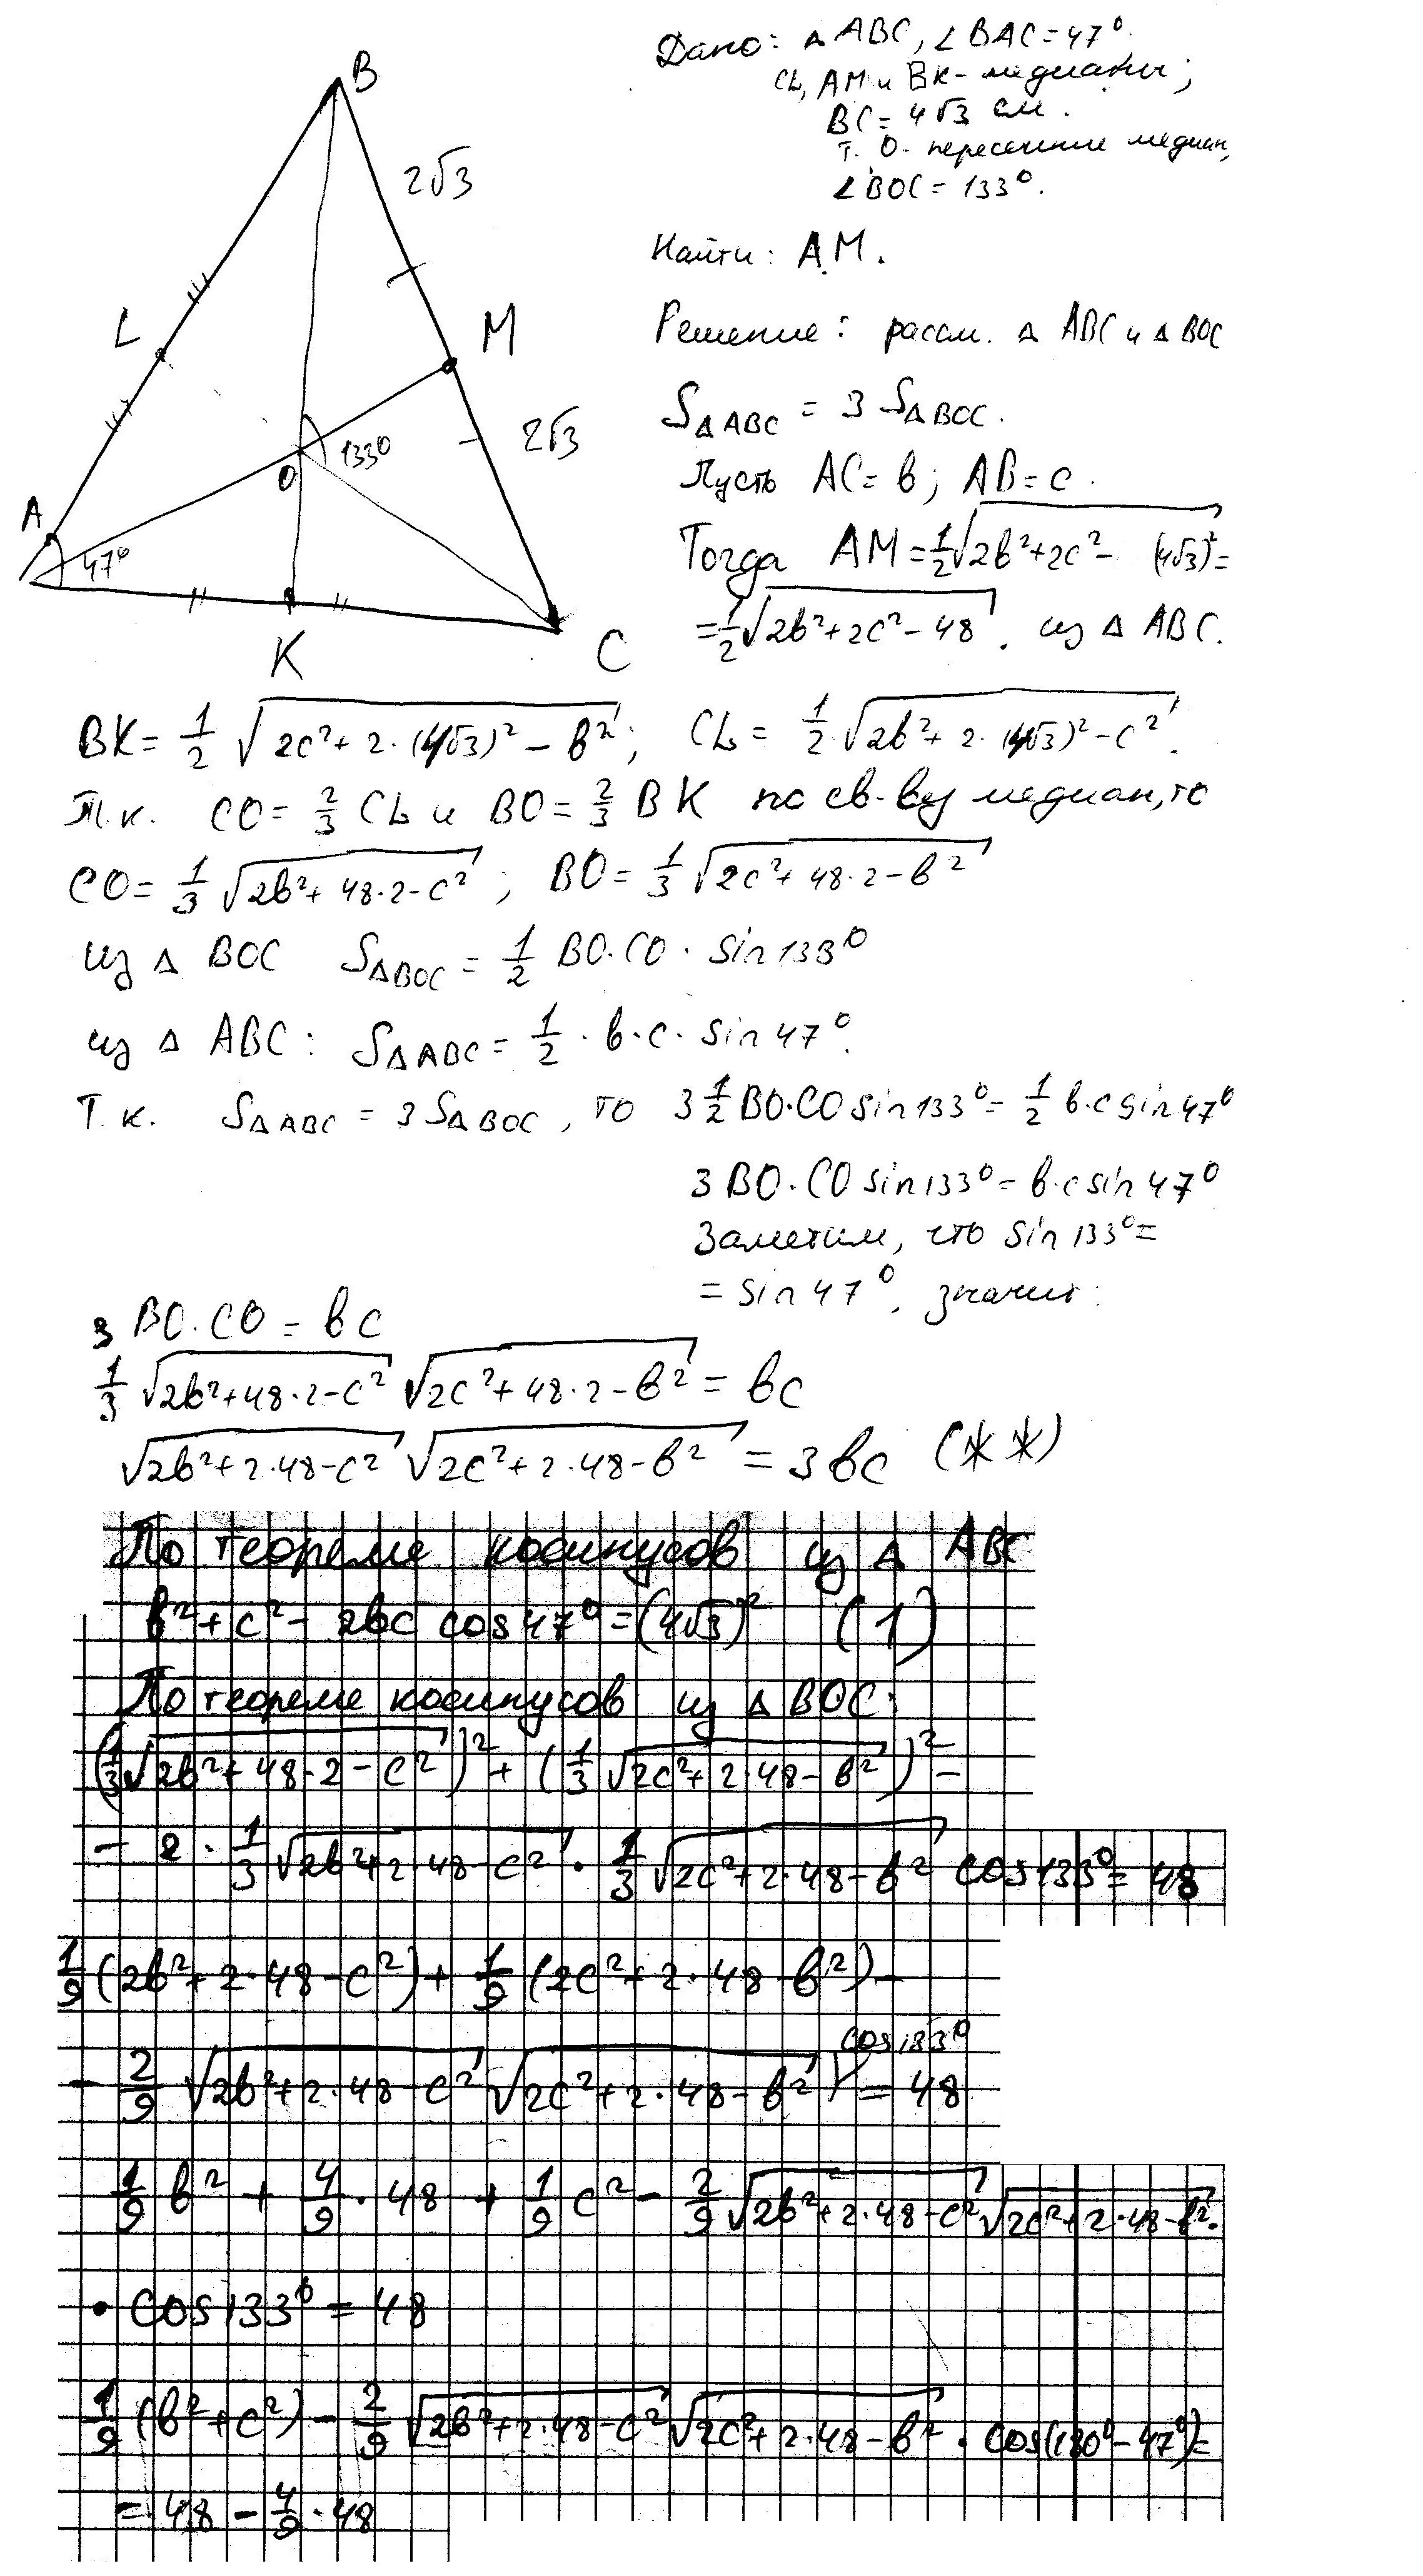 B
2√3
L
M
2√3
133⁰
O
A
47⁰
K
C
Дано: ▵ ABC, ∠ BAC = 47⁰.
CL, AM и BK - медианы;
BC = 4√3 см.
т. O - пересечение медиан,
∠ BOC = 133⁰.
Найти: AM.
Решение: рассм. ▵ ABC и ▵ BOC
S▵ABC = 3 S▵BOC.
Пусть AC = b; AB = c.
Тогда AM = 1/2 √(2b² + 2c² - (4√3)²) =
= 1/2 √(2b² + 2c² - 48). из ▵ ABC.
BK = 1/2 √(2c² + 2·(4√3)² - b²); CL = 1/2 √(2b² + 2·(4√3)² - c²).
Т.к. CO = 2/3 CL и BO = 2/3 BK по св-ву медиан, то
CO = 1/3 √(2b² + 48·2 - c²); BO = 1/3 √(2c² + 48·2 - b²)
из ▵ BOC S▵BOC = 1/2 BO·CO·sin 133⁰
из ▵ ABC: S▵ABC = 1/2·b·c·sin 47⁰.
Т.к. S▵ABC = 3 S▵BOC, то 3 1/2 BO·CO sin 133⁰ = 1/2 b·c sin 47⁰
3 BO·CO sin 133⁰ = b·c sin 47⁰
Заметим, что sin 133⁰ =
= sin 47⁰, значит:
3 BO·CO = bc
1/3 √(2b² + 48·2 - c²) √(2c² + 48·2 - b²) = bc
√(2b² + 2·48 - c²) √(2c² + 2·48 - b²) = 3bc (**)
По теореме косинусов из ▵ ABC
b² + c² - 2bc cos 47⁰ = (4√3)² (1)
По теореме косинусов из ▵ BOC:
(1/3 √(2b² + 48·2 - c²))² + (1/3 √(2c² + 2·48 - b²))² -
- 2·1/3 √(2b² + 2·48 - c²)·1/3 √(2c² + 2·48 - b²) cos 133⁰ = 48
1/9 (2b² + 2·48 - c²) + 1/9 (2c² + 2·48 - b²) -
- 2/9 √(2b² + 2·48 - c²) √(2c² + 2·48 - b²) cos 133⁰ = 48
1/9 b² + 4/9·48 + 1/9 c² - 2/9 √(2b² + 2·48 - c²) √(2c² + 2·48 - b²)·
· cos 133⁰ = 48
1/9 (b² + c²) - 2/9 √(2b² + 2·48 - c²) √(2c² + 2·48 - b²)·cos(180⁰ - 47⁰) =
= 48 - 4/9·48